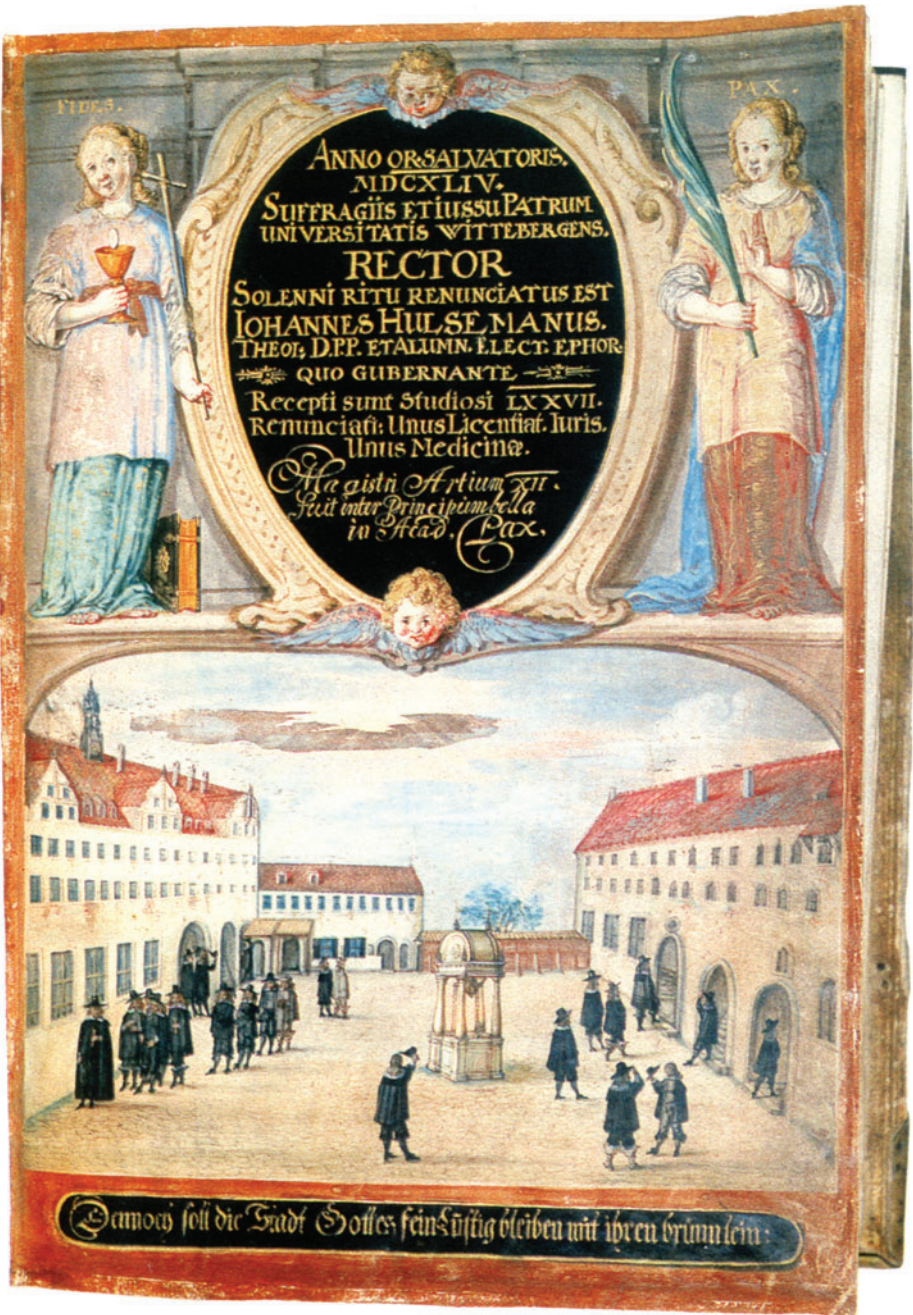 FIDES.
PAX.
ANNO OR·SALVATORIS.
MDCXLIV.
SUFFRAGIIS ET IUSSU PATRUM
UNIVERSITATIS WITTEBERGENS.
RECTOR
SOLENNI RITU RENUNCIATUS EST
IOHANNES HULSEMANUS.
THEOL: D.PP. ET ALUMN. ELECT. EPHOR.
QUO GUBERNANTE
Recepti sunt Studiosi LXXVII.
Renunciati: Unus Licentiat. Iuris.
Unus Medicinæ.
Magistri Artium XII.
Fuit inter Principum bella
in Acad. Pax.
Dennoch soll die Stadt Gottes fein Lustig bleiben mit ihren brünnlein: